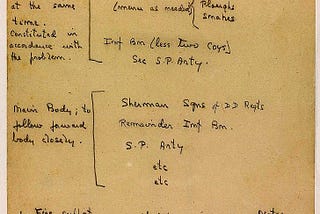 at the same
time.
Constituted in
accordance with
the problem.
(menu as needed)
Ploughs
Snakes
Inf Bn (less Two Coys)
Sec S.P. Arty.
Main Body; to
follow forward
body closely.
Sherman Sqns of DD Regts
Remainder Inf Bn.
S.P. Arty
etc
etc